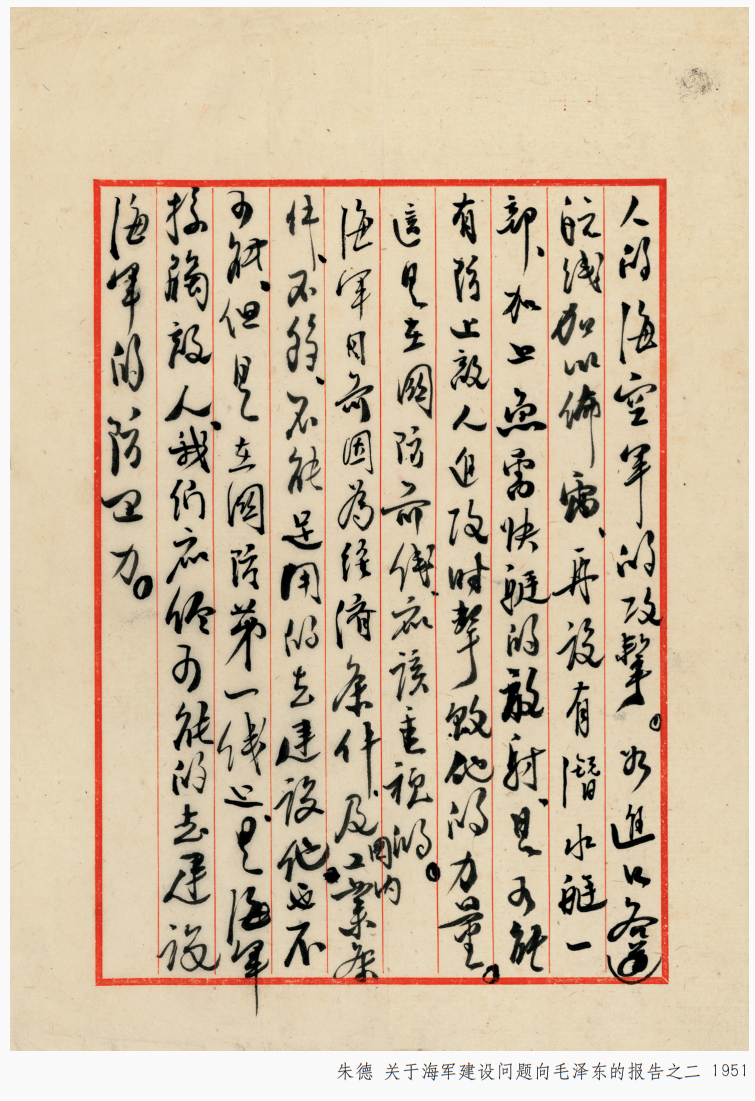 人的海空军的攻擊。如進口各道
航线加以佈雷、再设有潛水艇一
部、加上魚雷快艇的放射、是可能
有防止敌人进攻时擊败他的力量。
這是在國防前线、应该重视的。
海军目前因為经濟条件、及國内工業条
件、不够、不能足用的去建设他。也不
可能、但是在國防第一线上是海军
接觸敌人、我们应儘可能的去建设
海军的防卫力。
朱德 关于海军建设问题向毛泽东的报告之二 1951